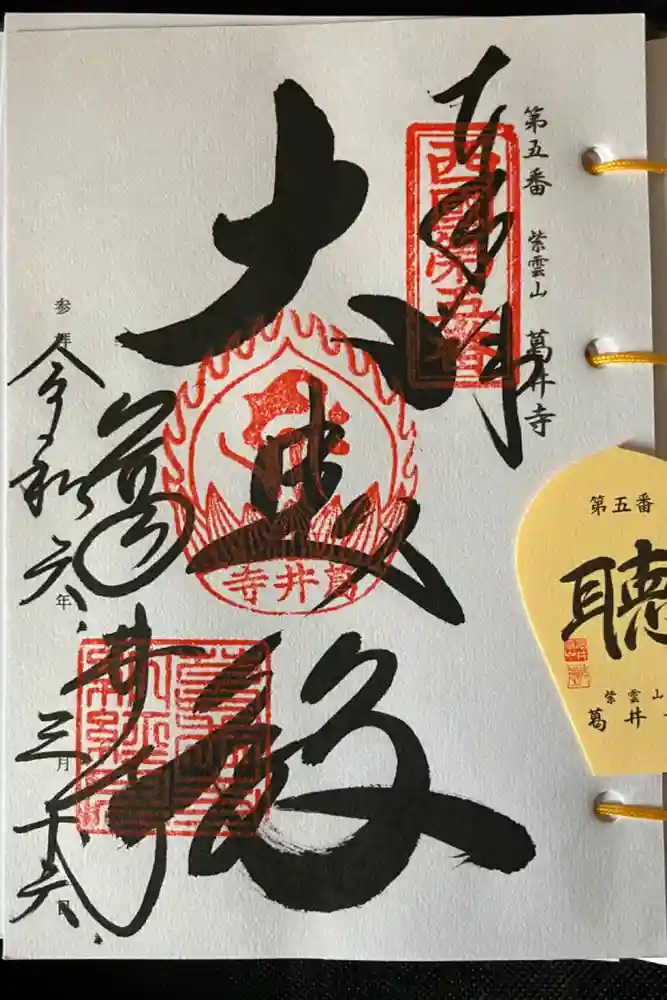 第五番 紫雲山 葛井寺
奉拝
西國第五番
大悲殿
葛井寺
葛井寺
参拝 令和六年三月十六日
第五番
聴
紫雲山
葛井